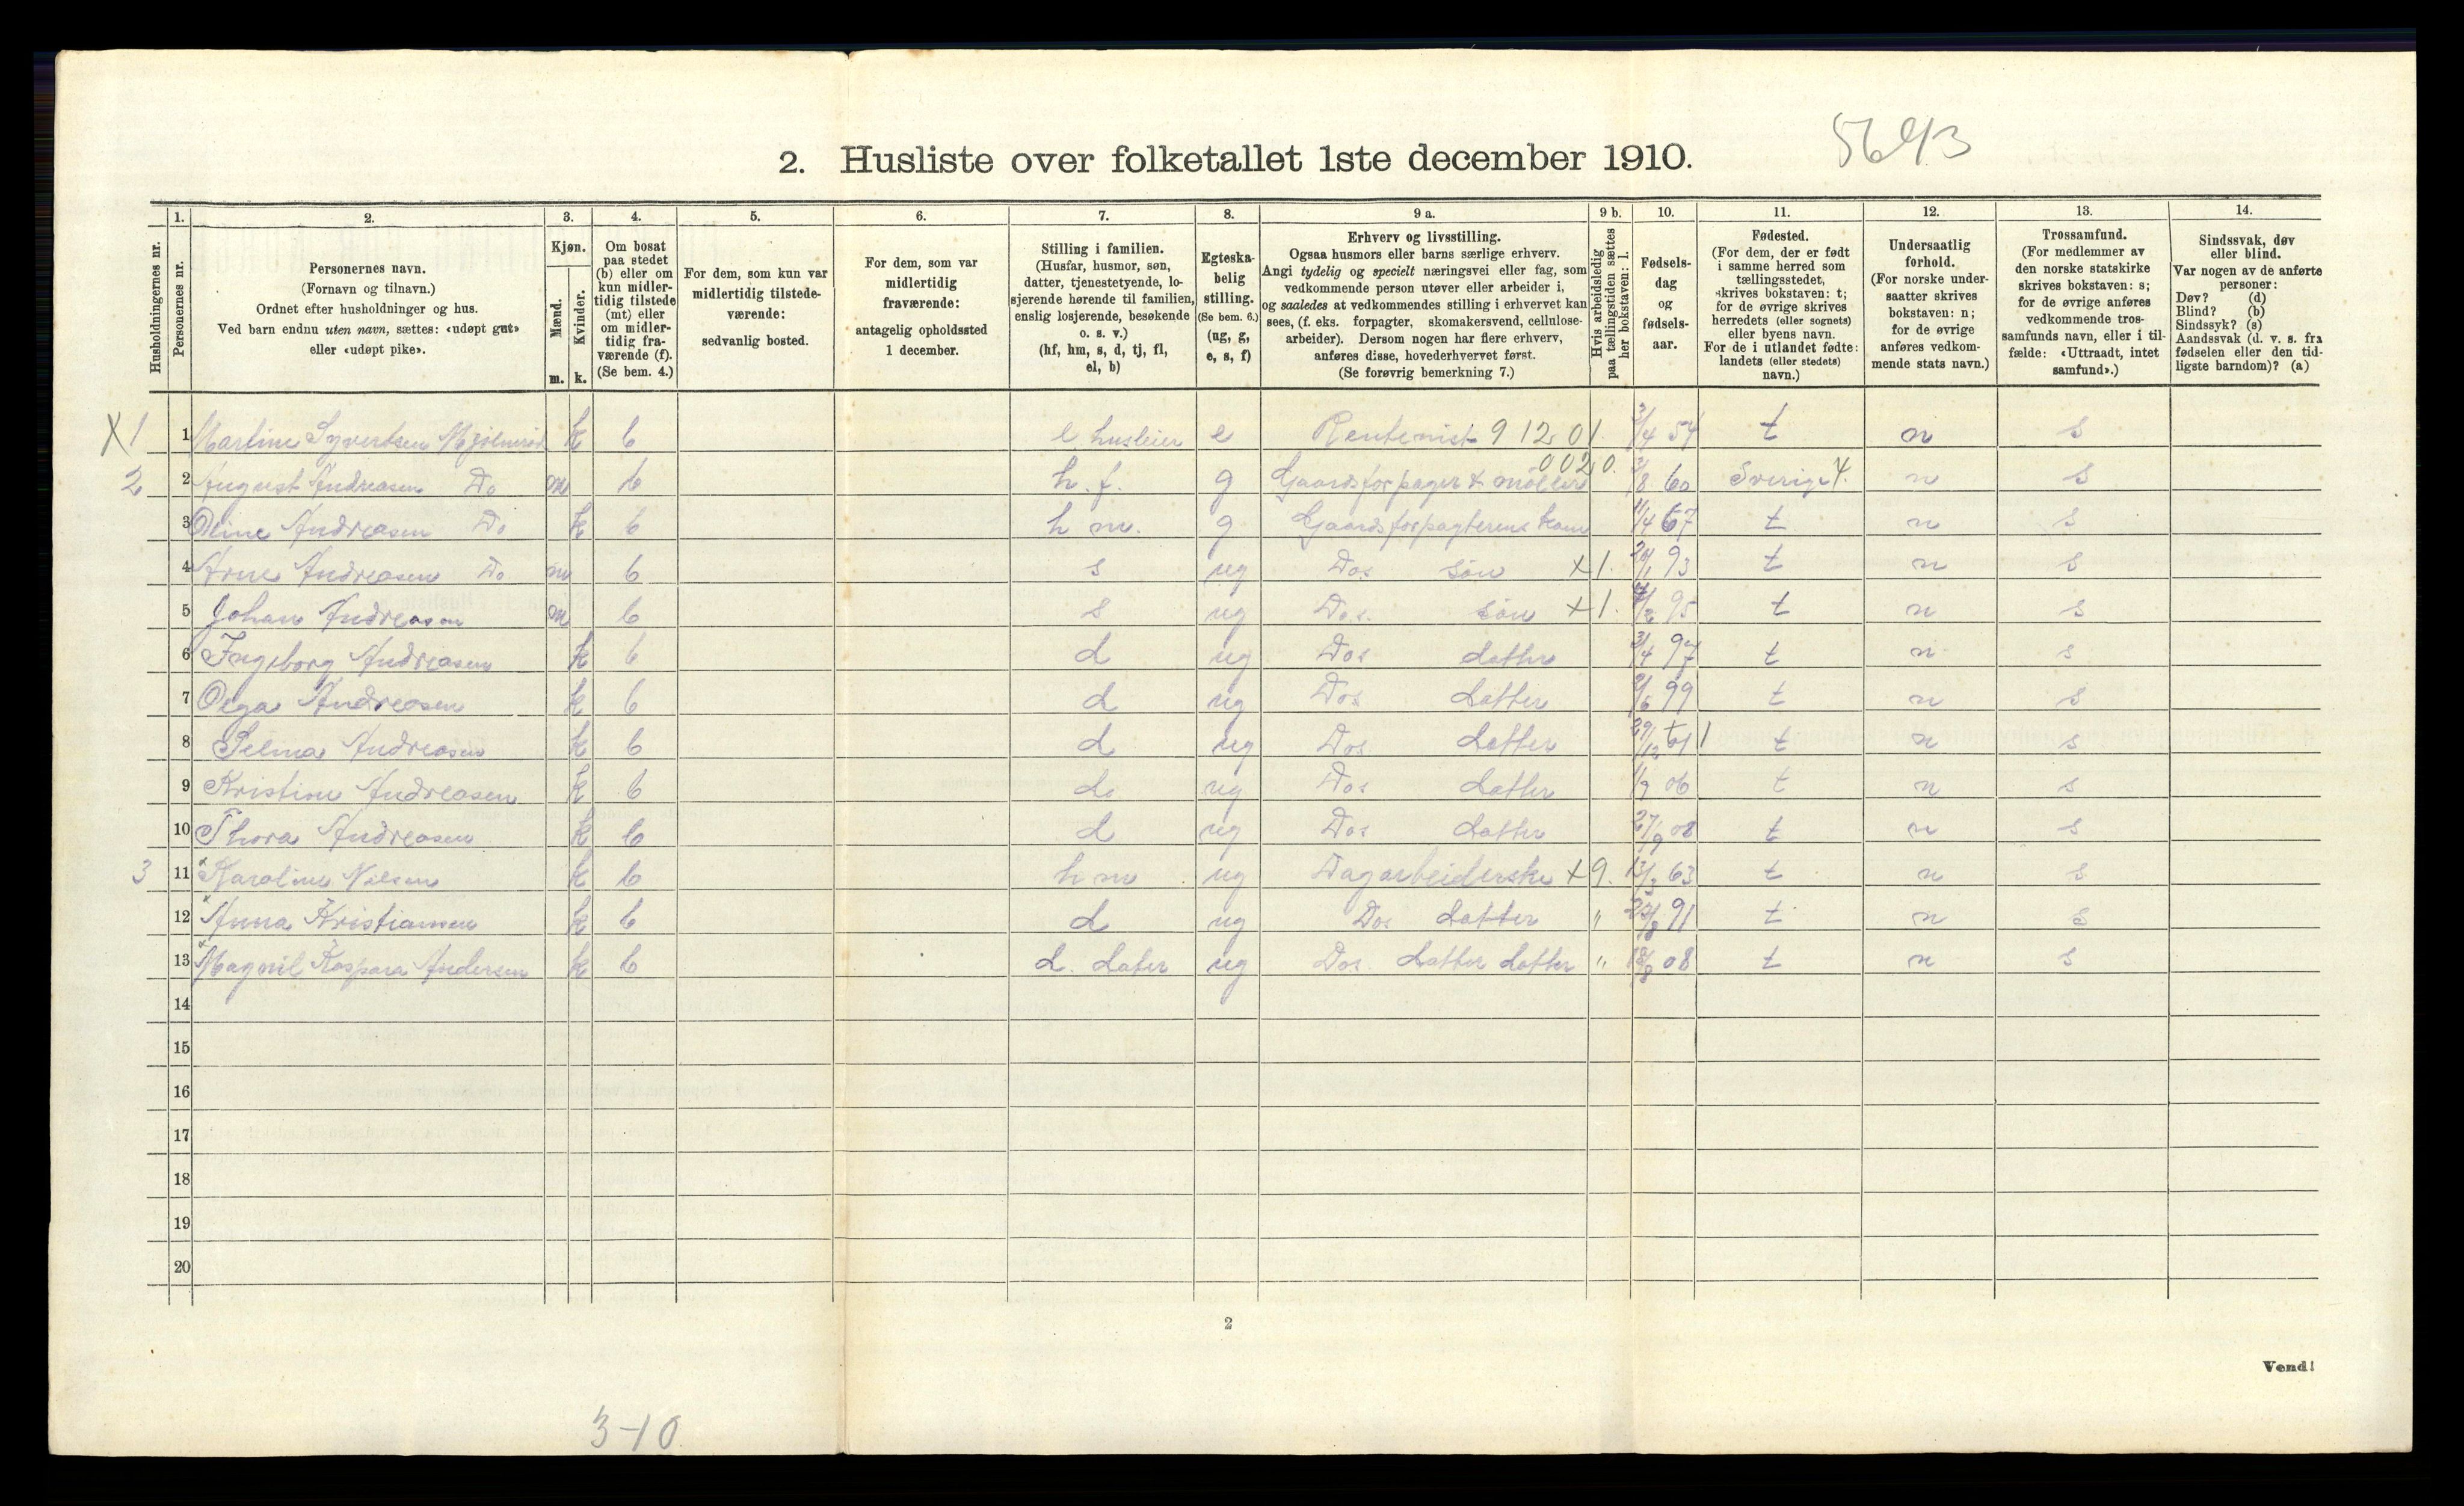 5643
2. Husliste over folketallet 1ste december 1910.
Husholdningernes nr.
1. Personernes nr.
2. Personernes navn. (Fornavn og tilnavn.) Ordnet efter husholdninger og hus. Ved barn endnu uten navn, sættes: «udøpt gut» eller «udøpt pike».
3. Kjøn. Mænd. m. Kvinder. k.
4. Om bosat paa stedet (b) eller om kun midlertidig tilstede (mt) eller om midlertidig fraværende (f). (Se bem. 4.)
5. For dem, som kun var midlertidig tilstedeværende: sedvanlig bosted.
6. For dem, som var midlertidig fraværende: antagelig opholdssted 1 december.
7. Stilling i familien. (Husfar, husmor, søn, datter, tjenestetyende, losjerende hørende til familien, enslig losjerende, besøkende o. s. v.) (hf, hm, s, d, tj, fl, el, b)
8. Egteskabelig stilling. (Se bem. 6.) (ug, g, e, s, f)
9 a. Erhverv og livsstilling. Ogsaa husmors eller barns særlige erhverv. Angi tydelig og specielt næringsvei eller fag, som vedkommende person utøver eller arbeider i, og saaledes at vedkommendes stilling i erhvervet kan sees, (f. eks. forpagter, skomakersvend, cellulosearbeider). Dersom nogen har flere erhverv, anføres disse, hovederhvervet først. (Se forøvrig bemerkning 7.)
9 b. Hvis arbeidsledig paa tællingstiden sættes her bokstaven: l.
10. Fødselsdag og fødselsaar.
11. Fødested. (For dem, der er født i samme herred som tællingsstedet, skrives bokstaven: t; for de øvrige skrives herredets (eller sognets) eller byens navn. For de i utlandet fødte: landets (eller stedets) navn.)
12. Undersaatlig forhold. (For norske undersaatter skrives bokstaven: n; for de øvrige anføres vedkommende stats navn.)
13. Trossamfund. (For medlemmer av den norske statskirke skrives bokstaven: s; for de øvrige anføres vedkommende trossamfunds navn, eller i tilfælde: «Uttraadt, intet samfund».)
14. Sindssvak, døv eller blind. Var nogen av de anførte personer: Døv? (d) Blind? (b) Sindssyk? (s) Aandssvak (d. v. s. fra fødselen eller den tidligste barndom)? (a)
X1 1 Martine Syvertsen k b e husleier e Rentenist 9 12 01. 3/4 54 t n s
2 2 August Andreasen Do m b h.f. g Gaardsforpager & møllere 002 0. 60 Sverige 4. n s
3 Oline Andreasen Do k b h m. g Gaardsforpagterens kone 11/4 67 t n s
4 Arne Andreasen Do m b s ug Dos søn x1. 93 t n s
5 Johan Andreasen m b s ug Dos. søn x1. 95 t n s
6 Ingeborg Andreasen k b d ug Dos datter 3/4 97 t n s
7 Olga Andreasen k b d ug Dos datter 99 t n s
8 Selma Andreasen k b d ug Dos datter 29/12 01 t n s
9 Kristine Andreasen k b d. ug Dos datter 06 t n s
10 Thora Andreasen k b d ug Dos datter 27/9 08 t n s
3 11 Karoline Nilsen k b h m ug Dagarbeiderske x9. 13/3 63 t n s
12 Anna Kristiansen k b d ug Dos datter " 91 t n s
13 Magnil Kaspara Andersen k b d. dater ug Dos. datter datter " 08 t n s
14
15
16
17
18
19
20
2
Vend!
3-10